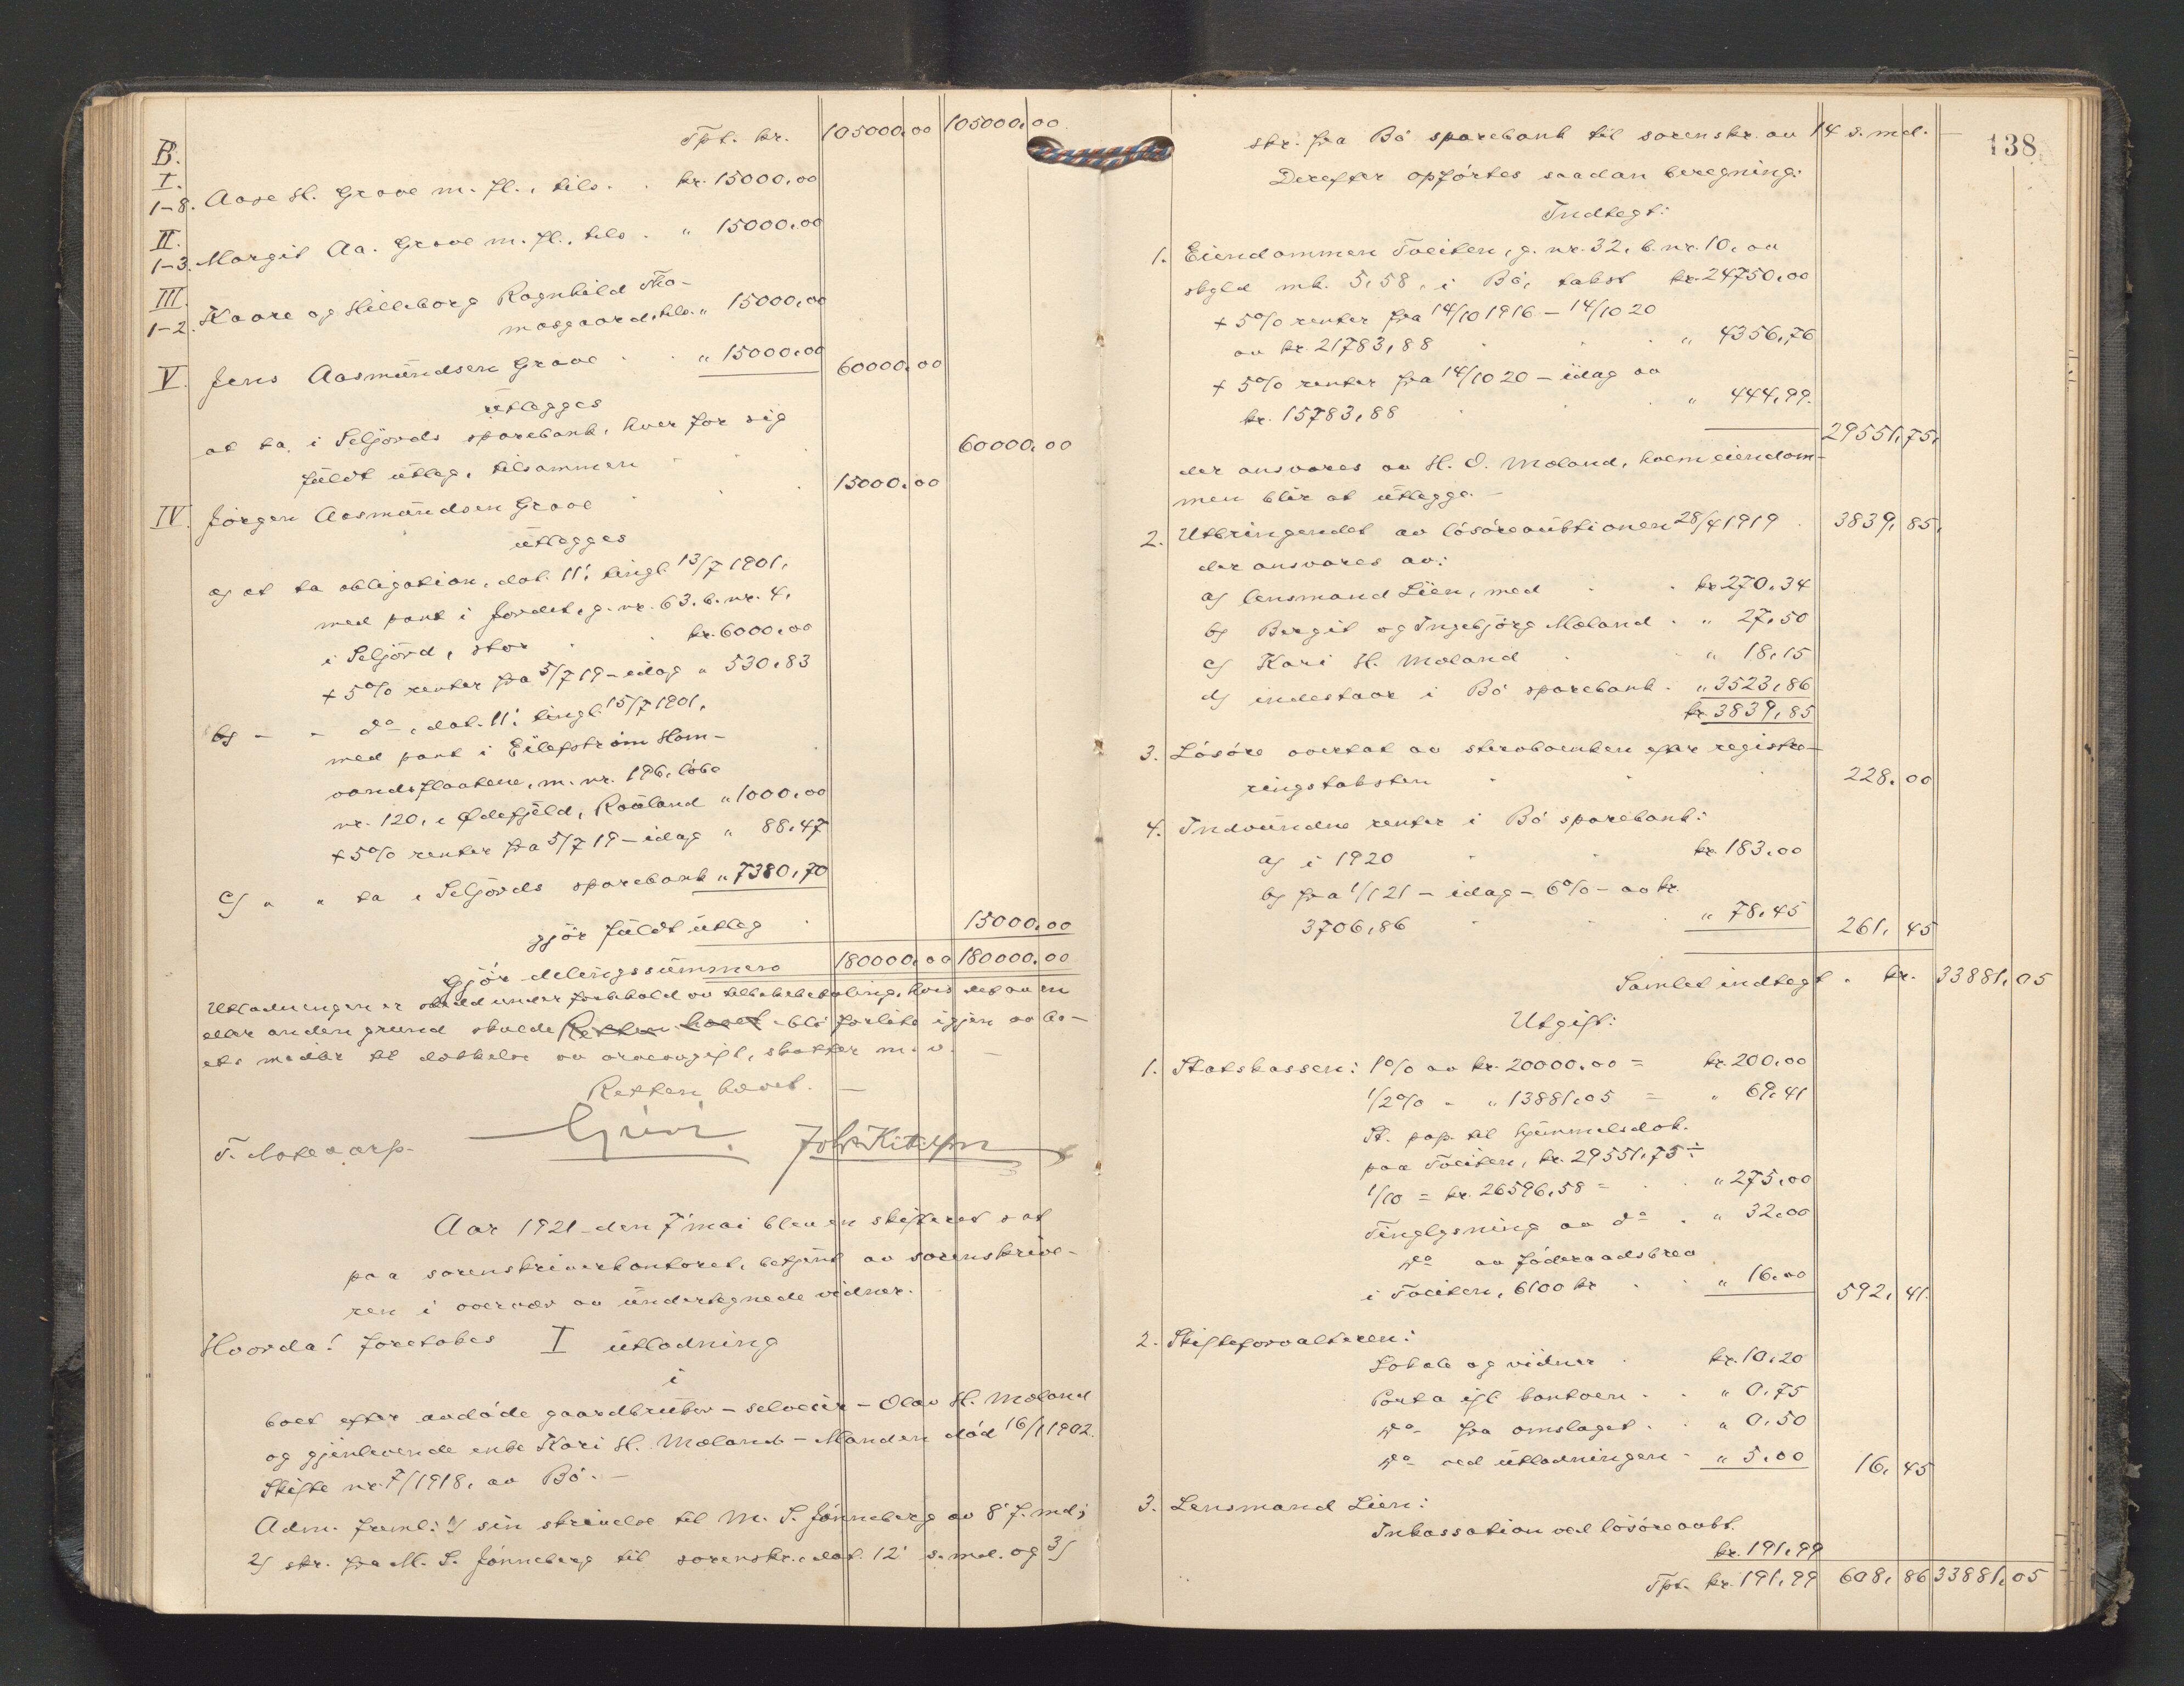 Tpt. kr. 105000.00 105000.00
B.
I.
1-8. Aase H. Grave m. fl., tils. . kr. 15000.00
II.
1-3. Margit Aa. Grave m. fl., tils . " 15000.00
III.
1-2. Kaare og Hilleborg Ragnhild Tho-
masgaard, tils. " 15000.00
V. Jens Aasmundsen Grave . . " 15000.00 60000.00
utlægges
at ta i Seljords sparebank, hver for sig
fuldt utlæg, tilsammen . . . 60000.00
IV. Jørgen Aasmundsen Grave . . . 15000.00
utlægges
a) at ta obligation, dat. 11', tingl. 13/7 1901,
med pant i Jordet, g. nr. 63, b. nr. 4,
i Seljord, stor . . kr. 6000.00
+ 5% renter fra 5/7 19 - idag " 530.83
b) - - do, dat. 11', tingl. 15/7 1901,
med pant i Eilefstrøm Ham-
vandsflaatene, m. nr. 196, løbe
nr. 120, i Ødefjeld, Rauland " 1000.00
+ 5% renter fra 5/7 19 - idag " 88.47
c) " " ta i Seljords sparebank " 7380.70
gjør fuldt utlæg . 15000.00
Gjør delingssummen 180000.00 180000.00
Utlodningen er skedd under forbehold av tilbakebetaling, hvis det av en
eller anden grund skulde Retten hævet bli forlite igjen av bo-
ets midler til dækkelse av arveavgift, skatter m. v. -
Retten hævet. -
T. Notevarp.
Aar 1921 - den 7' mai blev en skifteret sat
paa sorenskriverkontoret, betjent av sorenskrive-
ren i overvær av undertegnede vidner.
Hvorda! foretokes I utlodning
i
boet efter avdøde gaardbruker - selveier - Olav H. Moland
og gjenlevende enke Kari H. Moland - Manden død 16/1 1902.
Skifte nr. 7/1918, av Bø. -
Adm. freml: 1) sin skrivelse til M. S. Jønneberg av 8' f. md;
2) skr. fra M. S. Jønneberg til sorenskr., dat. 12' s. md. og 3)
138
skr. fra Bø sparebank til sorenskr. av 14 s. md. -
Derefter opførtes saadan beregning:
Indtægt:
1. Eiendommen Tveiten, g. nr. 32, b. nr. 10, av
skyld mk. 5,58, i Bø, takst kr. 24750.00
+ 5% renter fra 14/10 1916 - 14/10 20
av kr. 21783,88 . . . " 4356,76
+ 5% renter fra 14/10 20 - idag av
kr. 15783,88 . . " 444,99.
29551,75,
der ansvares av H. O. Moland, hvem eiendom-
men blir at utlægge. -
2. Utbringendet av løsøreauktionen 28/4 1919 . 3839, 85,
der ansvares av:
a) lensmand Lien, med . . kr. 270.34
b) Bergit og Ingebjørg Moland . " 27,50
c) Kari H. Moland . " 18,15
d) indestaar i Bø sparebank . " 3523,86
kr. 3839,85
3. Løsøre overtat av sterboenken efter registre-
ringstaksten . . . 228.00
4. Indvundne renter i Bø sparebank:
a) i 1920 . . kr. 183.00
b) fra 1/1 21 - idag - 6% - av kr.
3706,86 . . . " 78.45 261, 45
Samlet indtægt . kr. 33881,05
Utgift:
1. Statskassen: 1% av kr. 20000.00 = kr. 200.00
1/2% - " 13881.05 = " 69.41
St. pap. til hjemmelsdok.
paa Tveiten, kr. 29551,75 ÷
1/10 = kr. 26596,58 = . . " 275,00
Tinglysning av do . " 32.00
do av føderaadsbrev
i Tveiten, 6100 kr . . " 16.00 592, 41.
2. Skifteforvalteren:
Lokale og vidner . kr. 10.20
Porto ifl. kontoen . . " 0.75
do fra omslaget . . " 0.50
do ved utlodningen - " 5.00 16, 45
3. Lensmand Lien:
Inkassation ved løsøreaukt.
kr. 191.99
Tpt. kr. 191.99 608, 86 33881,05